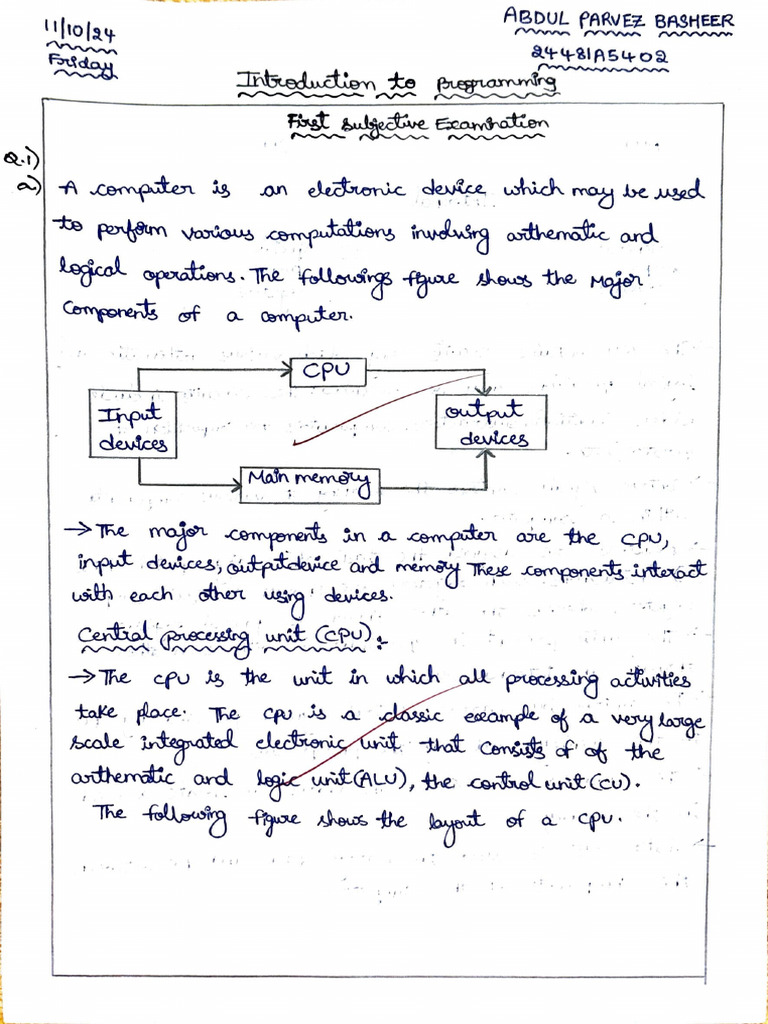 11/10/24
Friday
ABDUL PARVEZ BASHEER
24481A5402
Introduction to programming
First Subjective Examination
Q.1)
a) A computer is an electronic device which may be used
to perform various computations involving arthematic and
logical operations. The followings figure shows the Major
Components of a computer.
CPU
Input
devices
output
devices
Main memory
→ The major components in a computer are the CPU,
input devices, output device and memory These components interact
with each other using devices.
Central processing unit (CPU):
→ The CPU is the unit in which all processing activities
take place. The CPU is a classic example of a very large
scale integrated electronic unit that consists of of the
arthematic and logic unit (ALU), the control unit (CU).
The following figure shows the layout of a CPU.